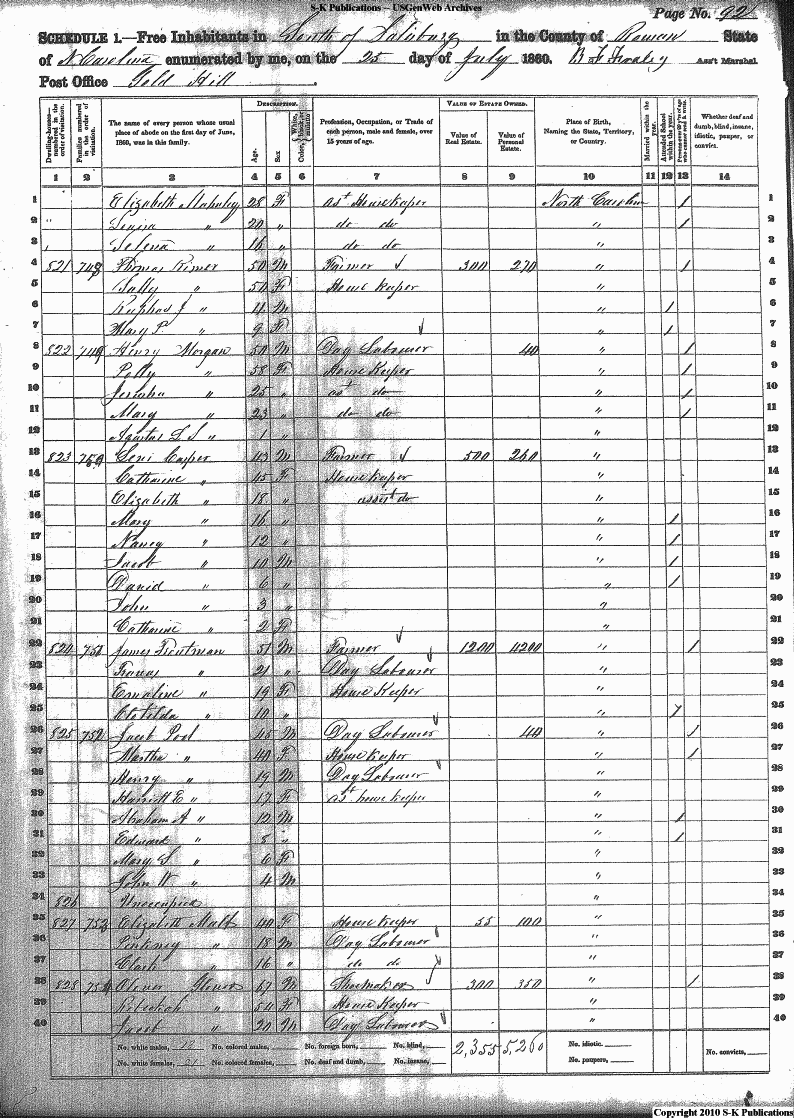 S-K Publications -- USGenWeb Archives
Page No. 92
SCHEDULE 1.—Free Inhabitants in South of Salisbury in the County of Rowan State
of N Carolina enumerated by me, on the 25 day of July 1860. Ass't Marshal
Post Office Gold Hill
DESCRIPTION. VALUE OF ESTATE OWNED.
Dwelling-houses—numbered in the order of visitation. Families numbered in the order of visitation. The name of every person whose usual place of abode on the first day of June, 1860, was in this family. Age. Sex Color, White, black, or mulatto Profession, Occupation, or Trade of each person, male and female, over 15 years of age. Value of Real Estate. Value of Personal Estate. Place of Birth, Naming the State, Territory, or Country. Married within the year. Attended School within the year. Persons over 20 y'rs of age who cannot read & write. Whether deaf and dumb, blind, insane, idiotic, pauper, or convict.
1 2 3 4 5 6 7 8 9 10 11 12 13 14
1 Elizabeth 28 F ast House Keeper North Carolina / 1
2 " 20 " do do " / 2
3 Selena " 16 " do do " 3
4 821 748 Thomas Rimer 50 M Farmer 300 270 " / 4
5 Sally " 50 F House Keeper " 5
6 Ruphas J " 11 M " / 6
7 Mary P. " 9 F " / 7
8 822 749 Henry Morgan 50 M Day Labourer 40 " / 8
9 Polly " 58 F House Keeper " / 9
10 " 25 " ast do " / 10
11 Mary " 23 " do do " / 11
12 L S " 1 " " 12
13 823 750 Levi Casper 43 M Farmer 500 260 " 13
14 Catharine " 45 F House Keeper " 14
15 Elizabeth " 18 " assist do " 15
16 Mary " 16 " " / 16
17 Nancy " 12 " " / 17
18 Jacob " 10 M " / 18
19 David " 6 " " / 19
20 John " 3 " " 20
21 Catharine " 2 F " 21
22 824 751 James Troutman 51 M Farmer 1200 4200 " / 22
23 " 21 " Day Labourer " 23
24 Emaline " 19 F House Keeper " 24
25 Clotilda " 10 " " / 25
26 825 752 Jacob Pool 45 M Day Labourer 40 " / 26
27 Martha " 40 F House Keeper " / 27
28 Henry " 19 M Day Labourer " 28
29 Harriett E " 17 F ast house keeper " 29
30 Abraham A " 12 M " / 30
31 Edmund " 8 " " / 31
32 Mary S " 6 F " 32
33 John W. " 4 M " 33
34 826 Unoccupied " 34
35 827 753 Elizabeth 40 F House Keeper 55 100 " 35
36 Pinkney " 18 M Day Labourer " 36
37 Clark " 16 " do do " 37
38 828 754 67 M Shoemaker 300 350 " / 38
39 Rebeckah " 54 F House Keeper " 39
40 Jacob " 20 M Day Labourer " 40
No. white males, No. colored males, No. foreign born, No. blind, 2,355 5,260 No. idiotic. No. convicts,
No. white females, No. colored females, No. deaf and dumb, No. insane, No. paupers,
Copyright 2010 S-K Publications